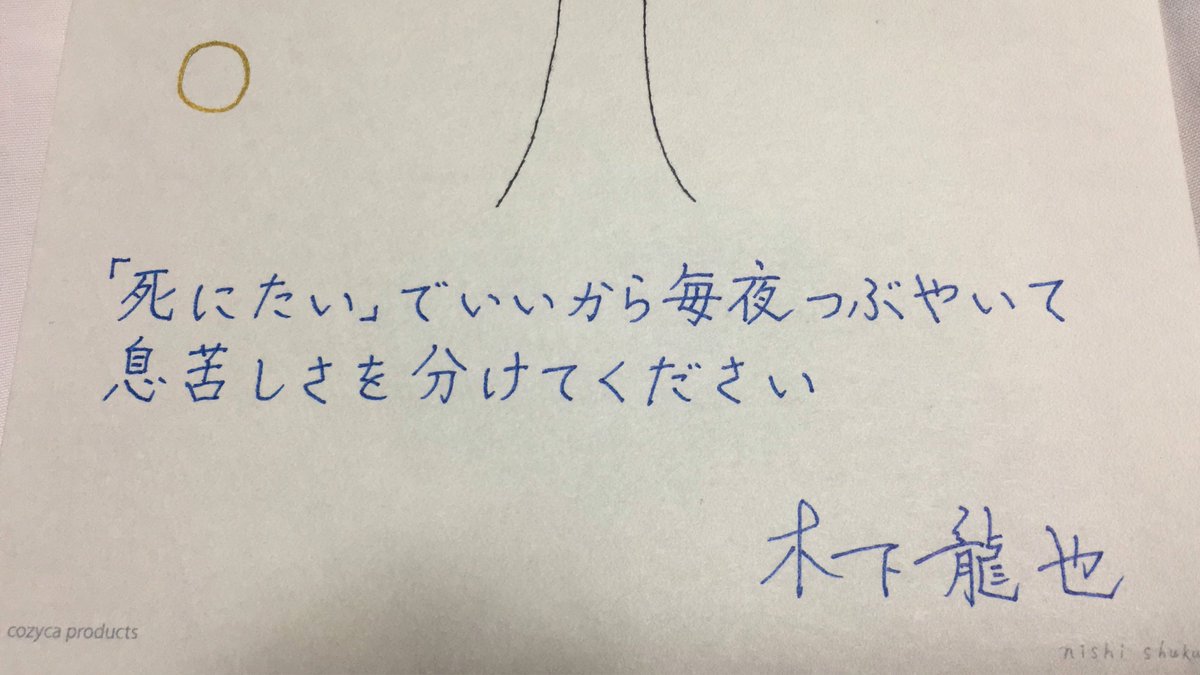 「死にたい」でいいから毎夜つぶやいて
息苦しさを分けてください
木下龍也
cozyca products
nishi shuku